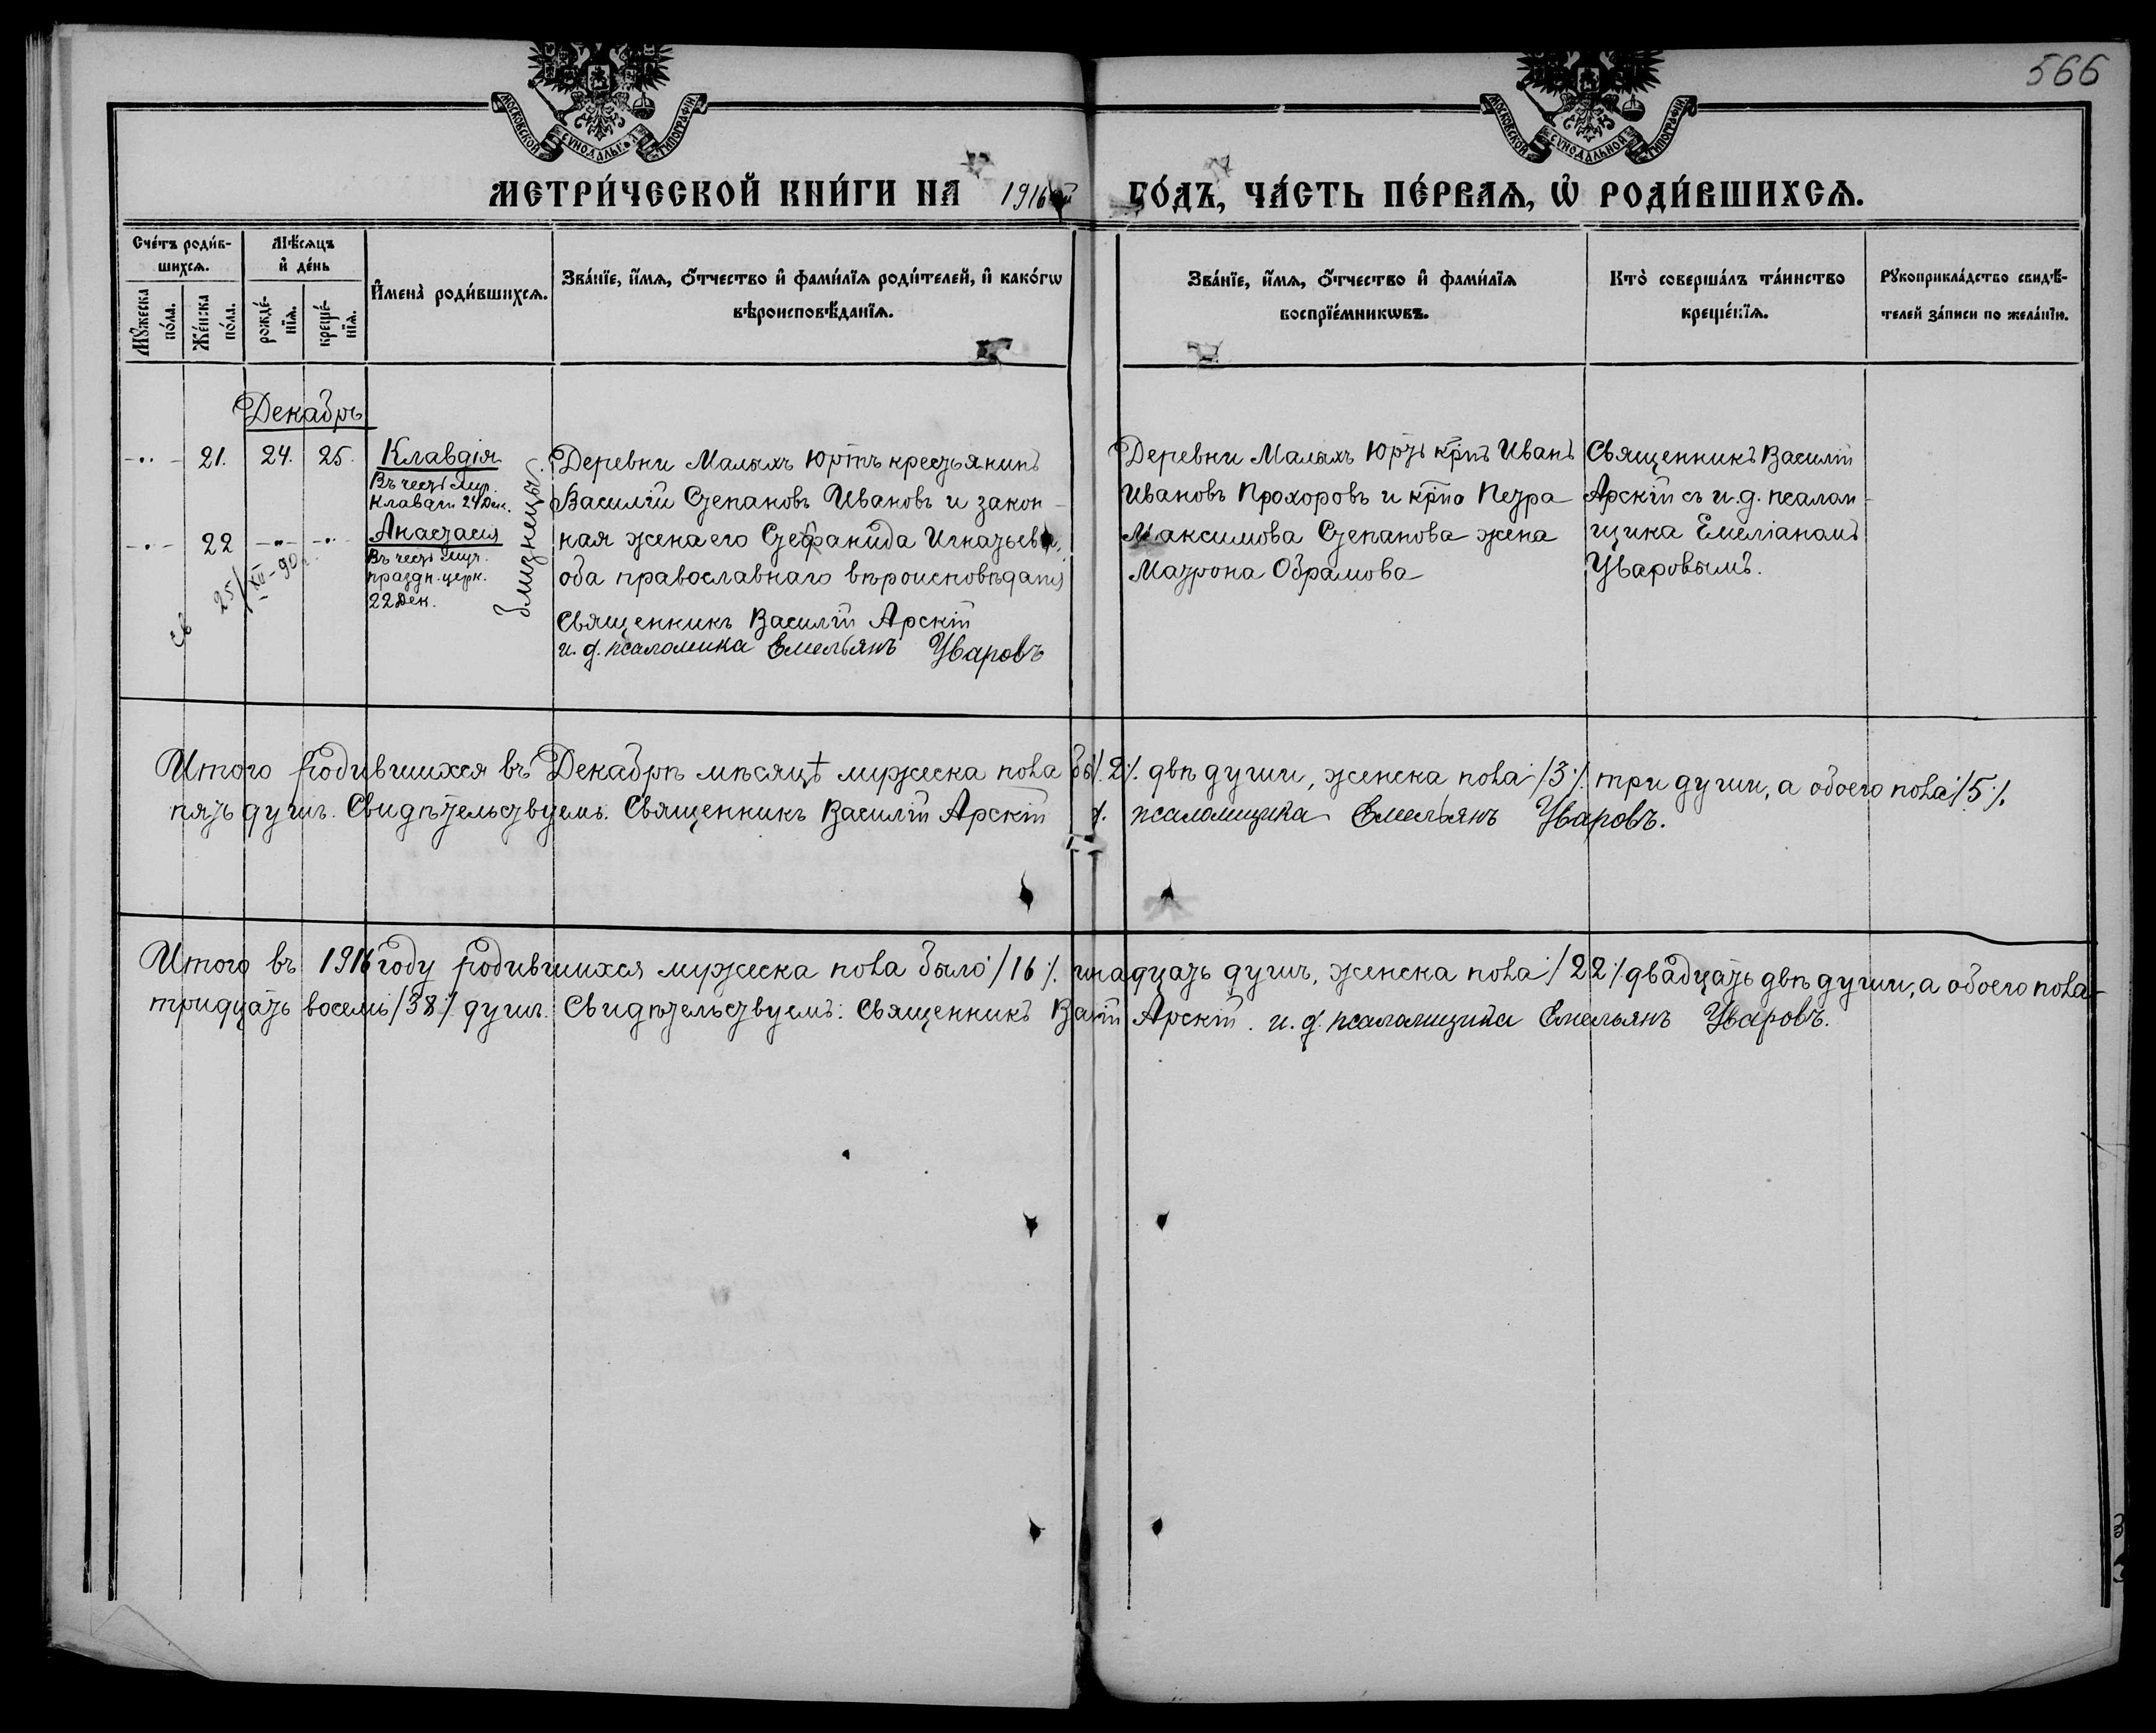 566
МОСКОВСКОЙ СУНОДАЛЬНОЙ ТИПОГРАФІИ.
МОСКОВСКОЙ СУНОДАЛЬНОЙ ТИПОГРАФІИ.
МЕТРИ́ЧЕСКОЙ КНИ́ГИ НА 1916
ГО́ДЪ, ЧА́СТЬ ПЕ́РВАѦ, Ѡ РОДИ́ВШИХСѦ.
Сче́тъ роди́в-
шихсѧ.
Мꙋ́жеска
по́ла.
Же́нска
по́ла.
Мѣ́сѧцъ
и҆ де́нь
рожде́-
нїѧ.
креще́-
нїѧ.
И҆мена̀ роди́вшихсѧ.
Зва́нїе, и҆́мѧ, ѻ҆́тчество и҆ фами́лїѧ роди́телей, и҆ како́гѡ
вѣроисповѣ́данїѧ.
Зва́нїе, и҆́мѧ, ѻ҆́тчество и҆ фами́лїѧ
воспрїе́мникѡвъ.
Кто̀ соверша́лъ та́инство
креще́нїѧ.
Рꙋкоприкла́дство свидѣ́-
телей за́писи по жела́нїю.
Декабрь
21. 24. 25. Клавдія
Въ честь муч.
Клавдіи 24 Дек.
22 Анастасія
Въ честь муч.
праздн. церк.
22 Дек.
25/XII-90
близнецы
Деревни Малыхъ Юртъ крестьянинъ
Василій Степановъ Ивановъ и закон-
ная жена его Стефанида Игнатьева,
оба православнаго вѣроисповѣданія
Священникъ Василій Арскій
и. д. псаломщика Емельянъ Уваровъ
Деревни Малыхъ Юртъ крнъ Иванъ
Ивановъ Прохоровъ и крна Петра
Максимова Степанова жена
Матрона Обрамова
Священникъ Василій
Арскій съ и. д. псалом-
щика Емеліаномъ
Уваровымъ.
Итого родившихся въ Декабрѣ мѣсяцѣ мужеска пола /2/. двѣ души, женска пола /3/. три души, а обоего пола /5/.
пять душъ. Свидѣтельствуемъ. Священникъ Василій Арскій д. псаломщика Емельянъ Уваровъ.
Итого въ 1916 году родившихся мужеска пола было /16/. душъ, женска пола /22/ двадцать двѣ души, а обоего пола
тридцать восемь /38/. душъ. Свидѣтельствуемъ: Священникъ Арскій. и. д. псаломщика Емельянъ Уваровъ.